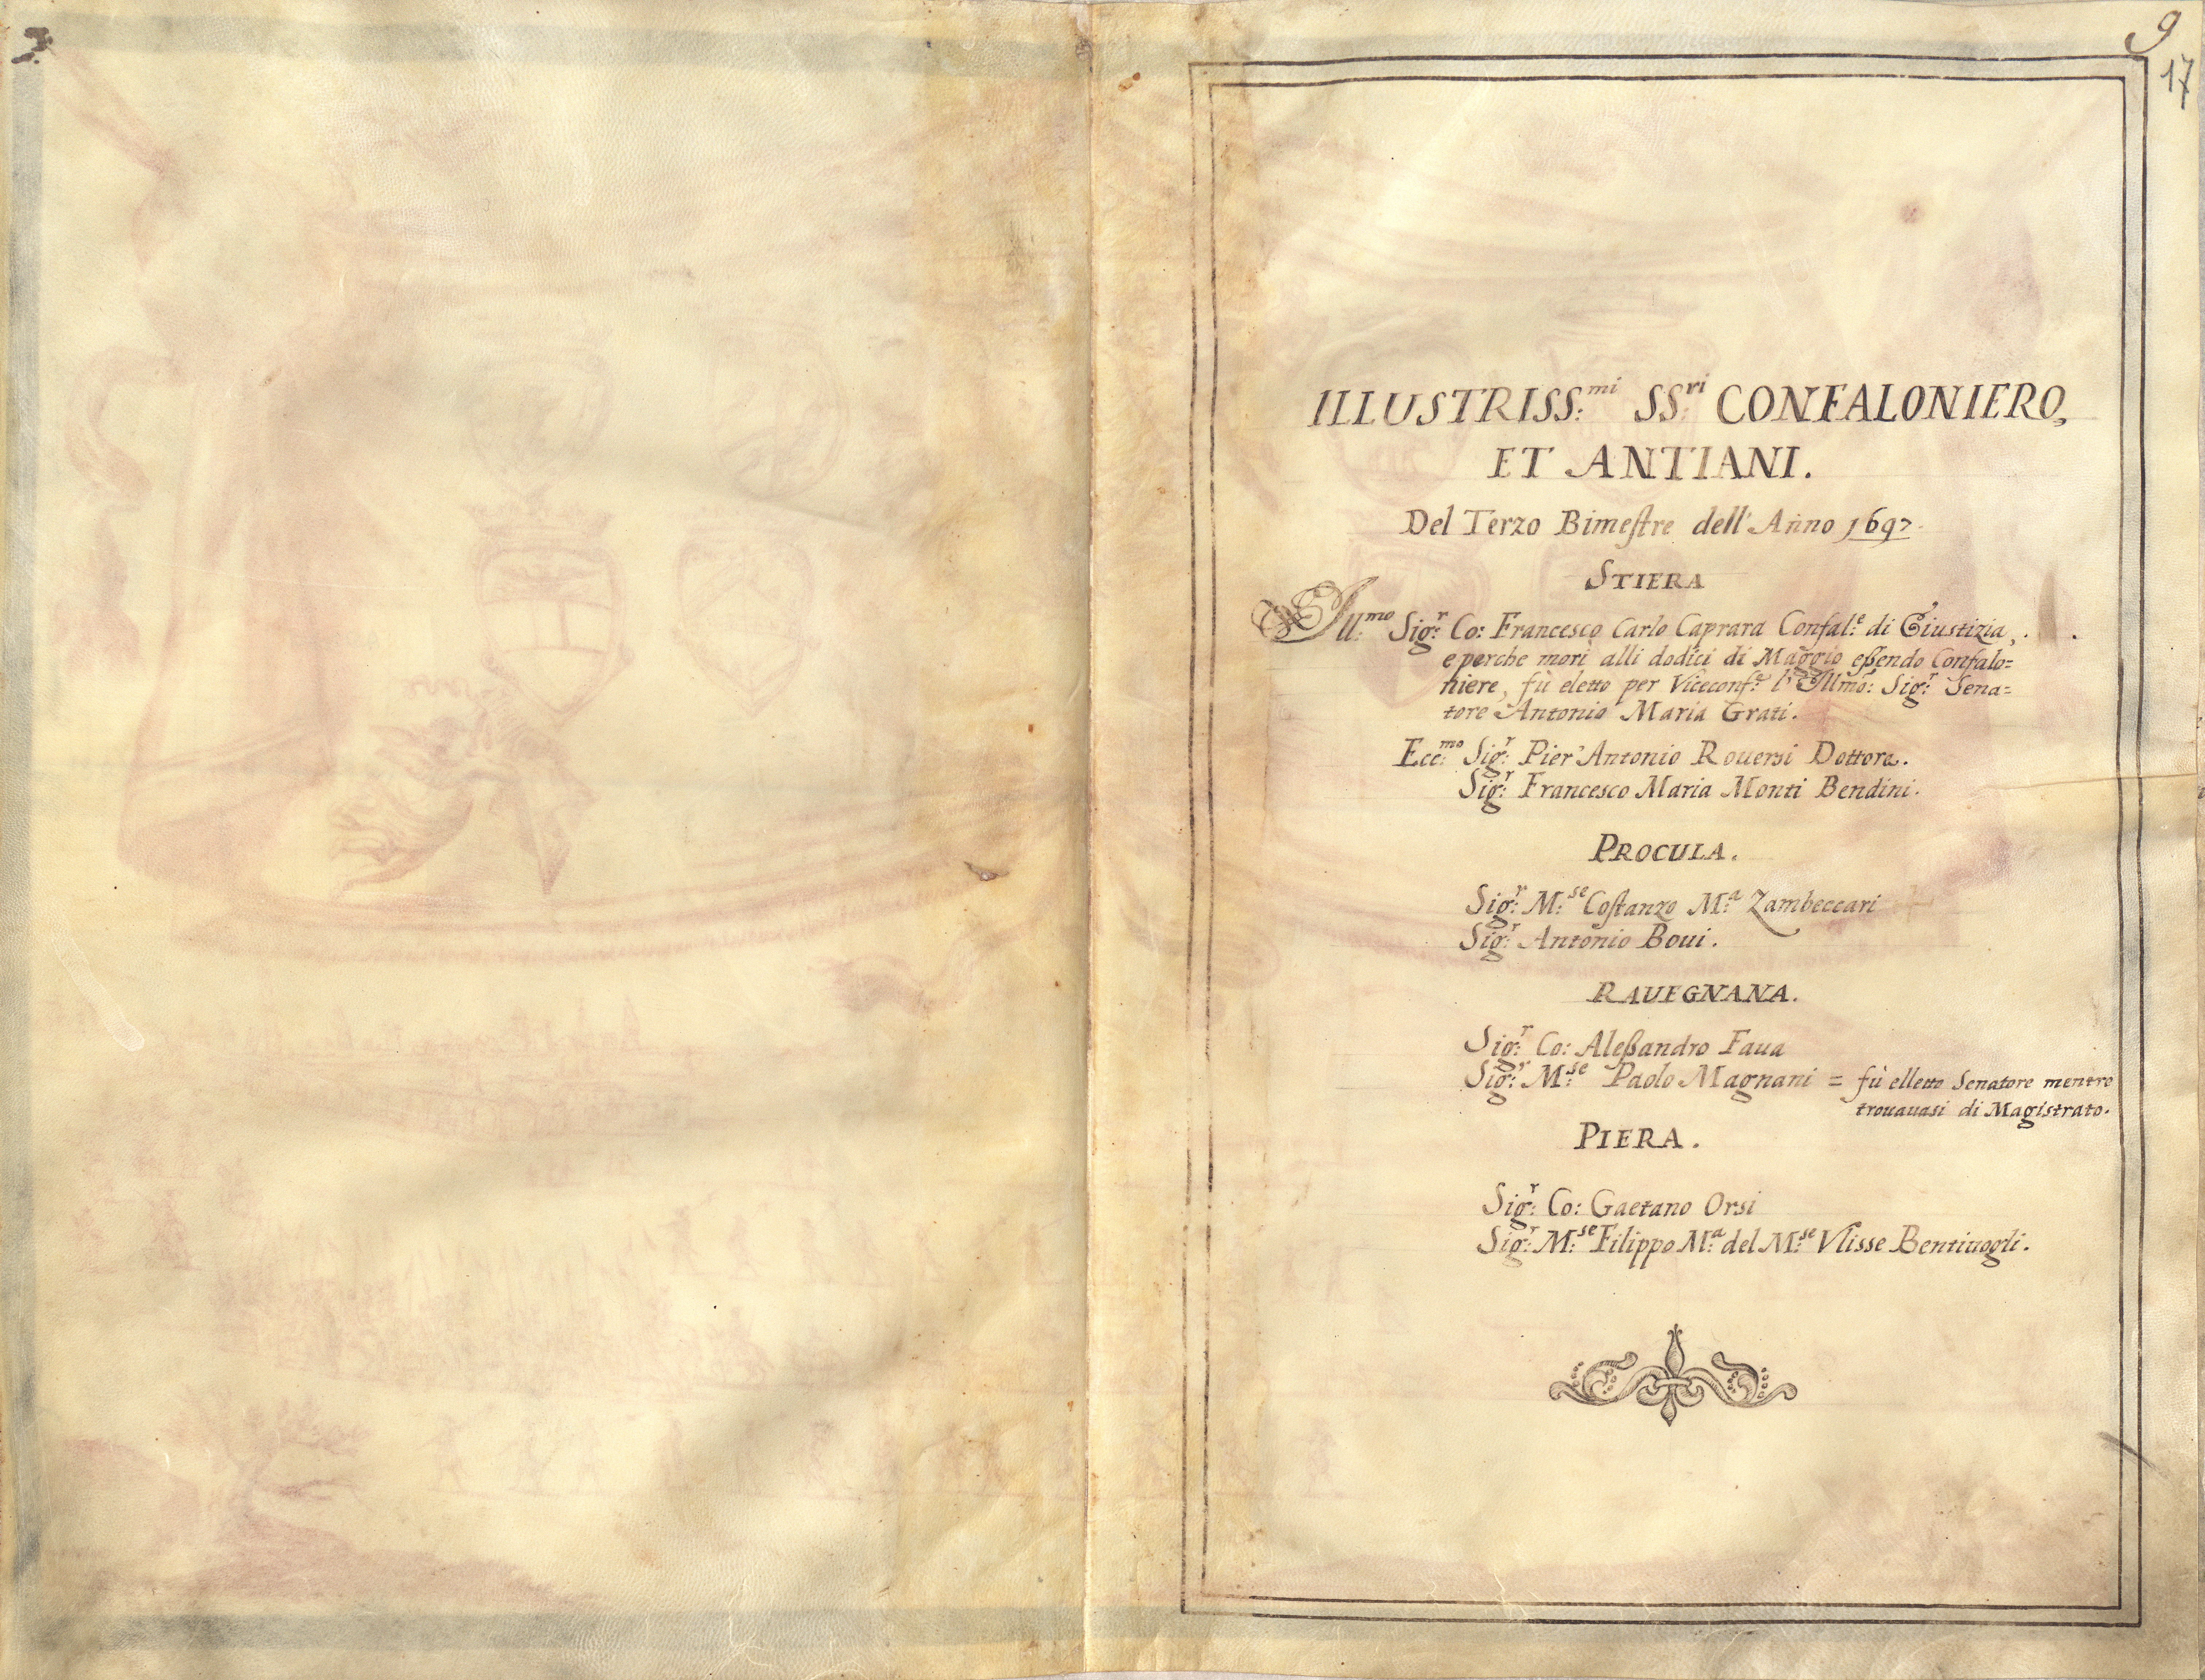 9
17
ILLUSTRISS:mi SS:ri CONFALONIERO,
ET ANTIANI.
Del Terzo Bimestre dell' Anno 1697
STIERA
Ill:mo Sig:r Co: Francesco Carlo Caprara Confal:e di Giustizia,
e perche morì alli dodici di Maggio eßendo Confalo=
niere, fù eletto per Viceconf:e l'Illmo: Sig:r Sena=
tore Antonio Maria Grati.
Ecc:mo Sig:r Pier' Antonio Rouersi Dottore.
Sig:r Francesco Maria Monti Bendini.
PROCULA.
Sig:r M:se Costanzo M:a Zambeccari
Sig:r Antonio Boui.
RAUEGNANA.
Sig:r Co: Aleßandro Faua
Sig:r M:se Paolo Magnani = fù elletto Senatore mentre
trouauasi di Magistrato.
PIERA.
Sig:r Co: Gaetano Orsi
Sig:r M:se Filippo M:a del M:se Vlisse Bentiuogli.